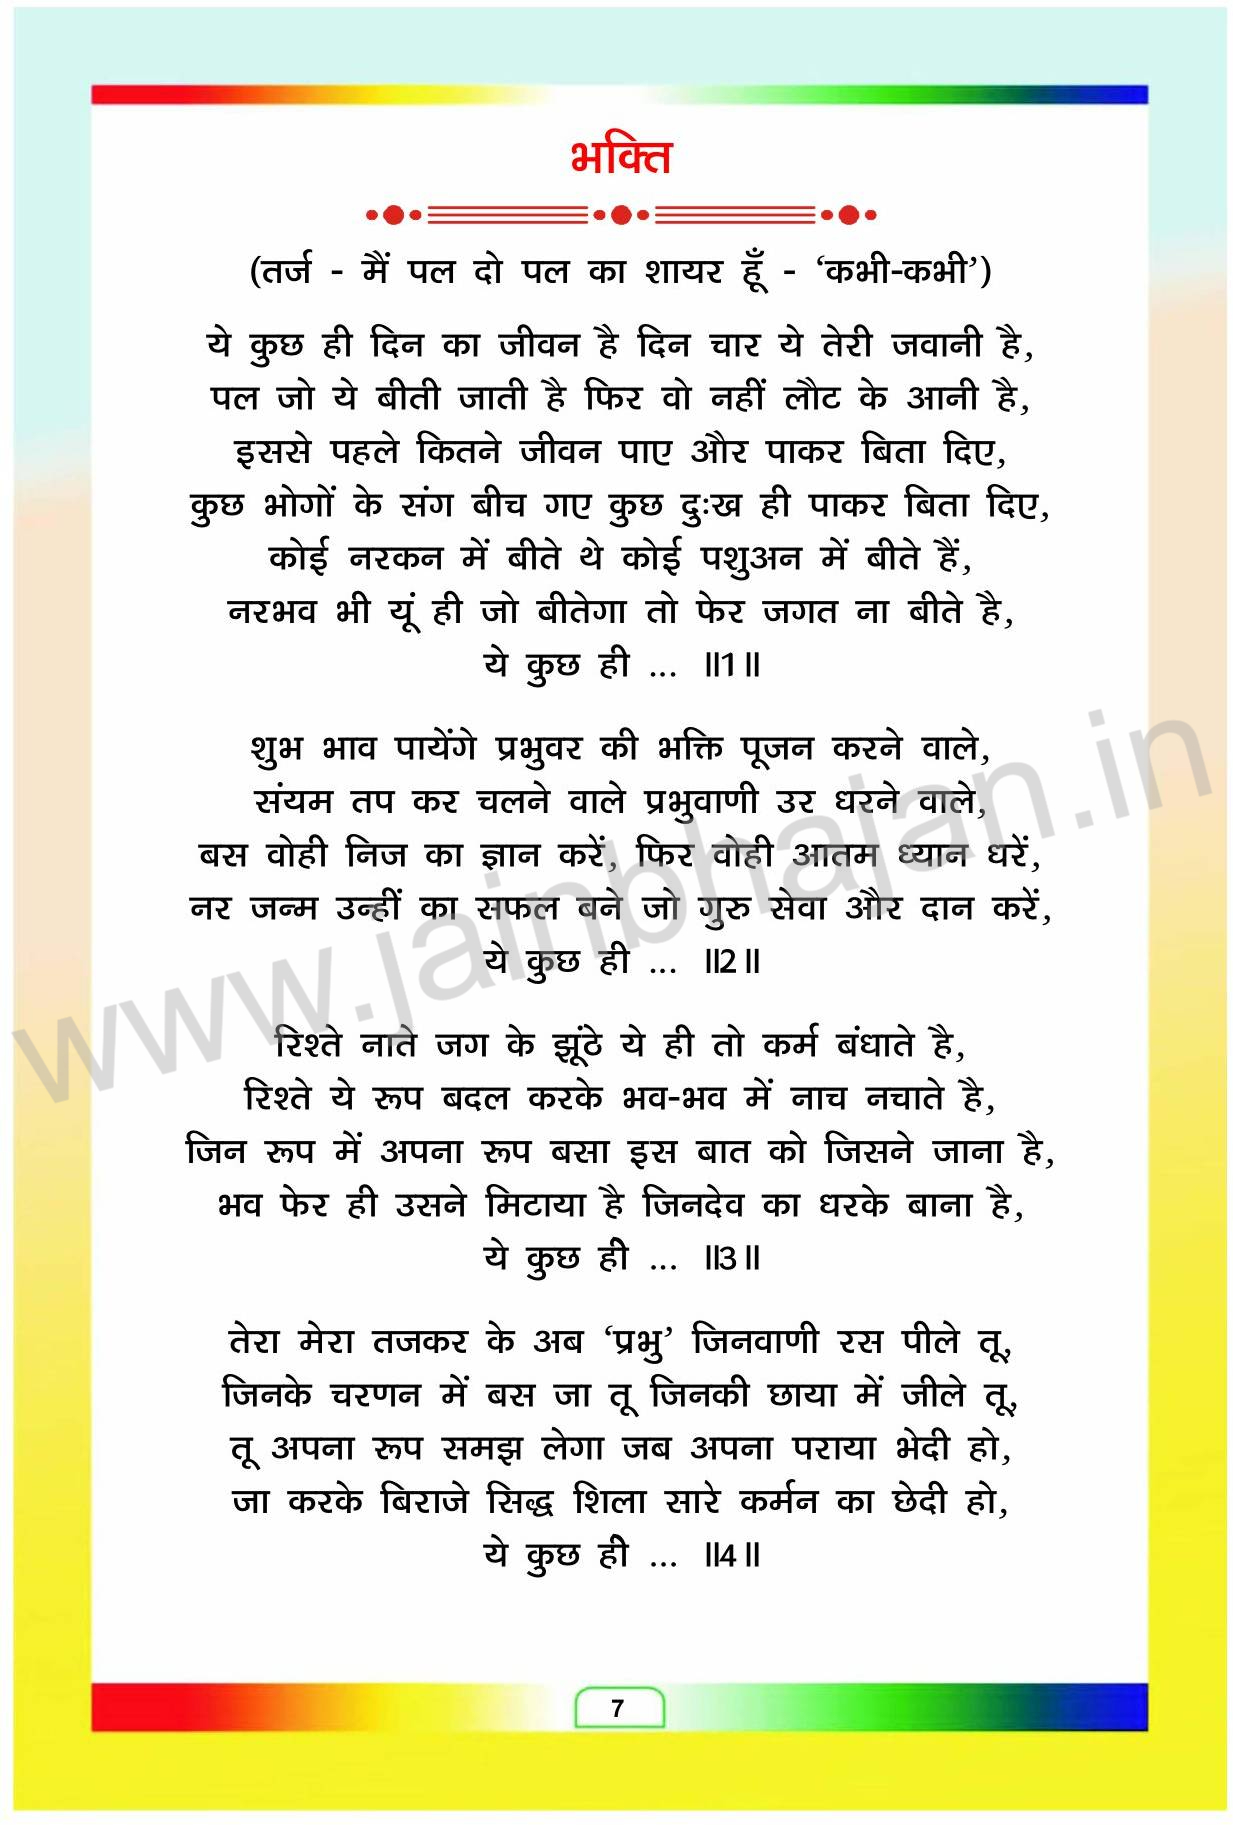 भक्ति
(तर्ज - मैं पल दो पल का शायर हूँ - ‘कभी-कभी’)
ये कुछ ही दिन का जीवन है दिन चार ये तेरी जवानी है,
पल जो ये बीती जाती है फिर वो नहीं लौट के आनी है,
इससे पहले कितने जीवन पाए और पाकर बिता दिए,
कुछ भोगों के संग बीच गए कुछ दुःख ही पाकर बिता दिए,
कोई नरकन में बीते थे कोई पशुअन में बीते हैं,
नरभव भी यूं ही जो बीतेगा तो फेर जगत ना बीते है,
ये कुछ ही ... ॥1॥
शुभ भाव पायेंगे प्रभुवर की भक्ति पूजन करने वाले,
संयम तप कर चलने वाले प्रभुवाणी उर धरने वाले,
बस वोही निज का ज्ञान करें, फिर वोही आतम ध्यान धरें,
नर जन्म उन्हीं का सफल बने जो गुरु सेवा और दान करें,
ये कुछ ही ... ॥2॥
रिश्ते नाते जग के झूंठे ये ही तो कर्म बंधाते है,
रिश्ते ये रूप बदल करके भव-भव में नाच नचाते है,
जिन रूप में अपना रूप बसा इस बात को जिसने जाना है,
भव फेर ही उसने मिटाया है जिनदेव का धरके बाना है,
ये कुछ ही ... ॥3॥
तेरा मेरा तजकर के अब ‘प्रभु’ जिनवाणी रस पीले तू,
जिनके चरणन में बस जा तू जिनकी छाया में जीले तू,
तू अपना रूप समझ लेगा जब अपना पराया भेदी हो,
जा करके बिराजे सिद्ध शिला सारे कर्मन का छेदी हो,
ये कुछ ही ... ॥4॥
7
www.jainbhajan.in